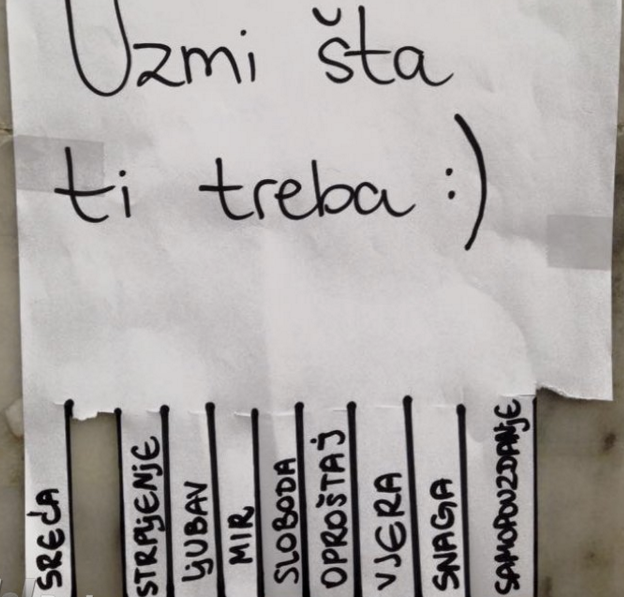 Uzmi šta
ti treba :)
SREĆA
STRPljENjE
ljUBAV
MIR
SLOBODA
OPROŠTAJ
VJERA
SNAGA
SAMOPOUZDANjE